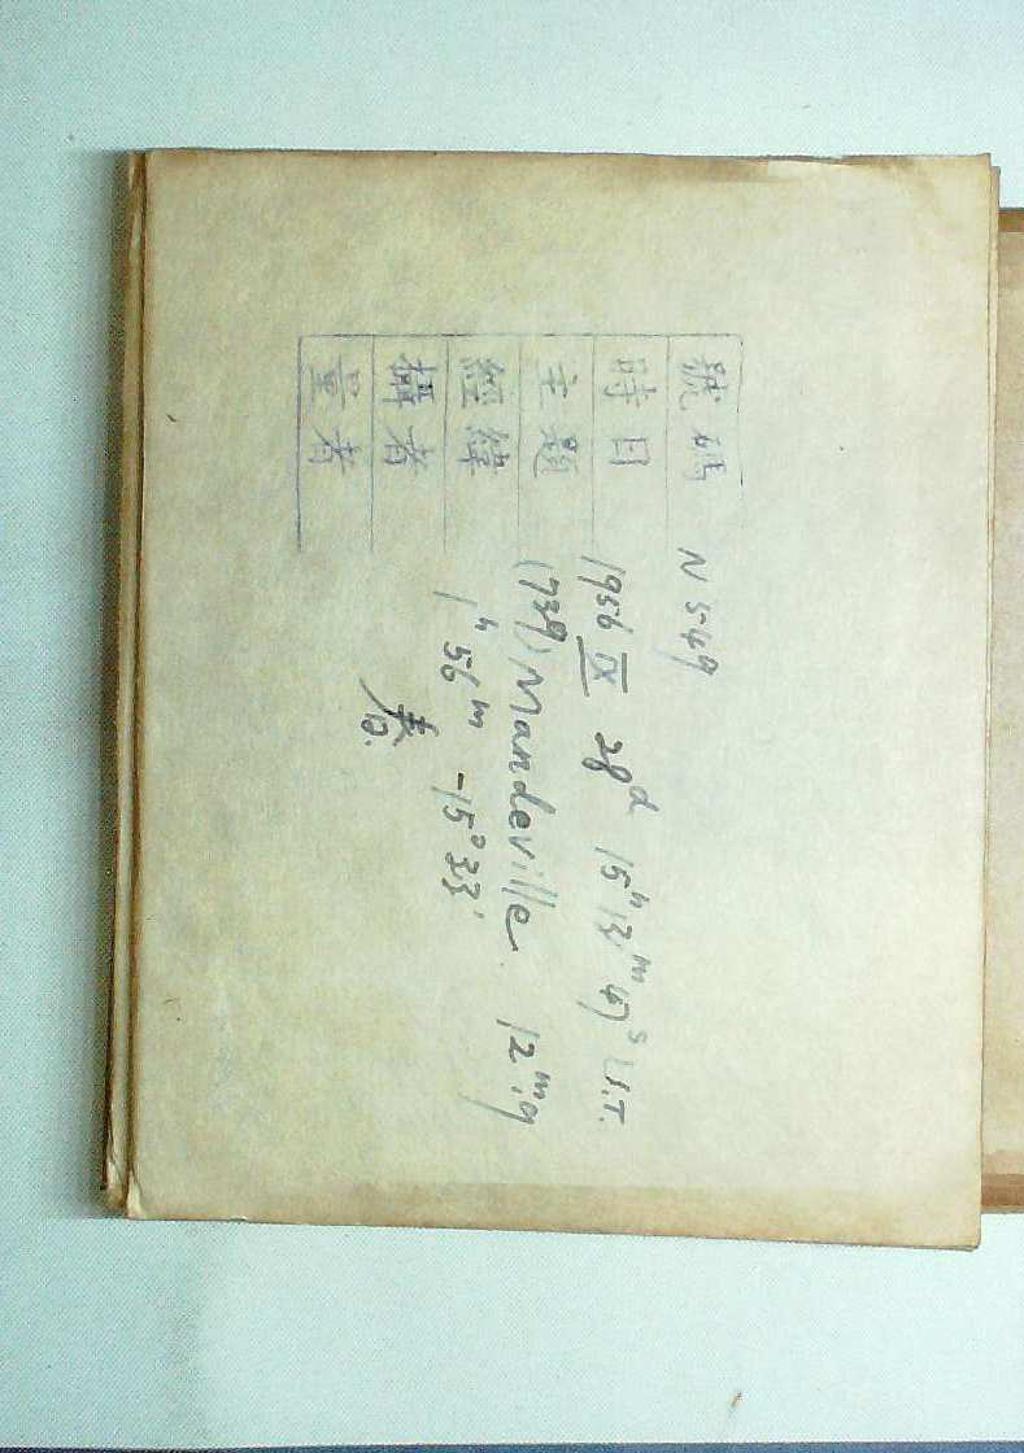 號碼 N549
時日 1956 IX 28d 15h13m47s U.T.
主題 (739) Mandeville 12m.9
經緯 1h 56m -15°33'
攝者
量者